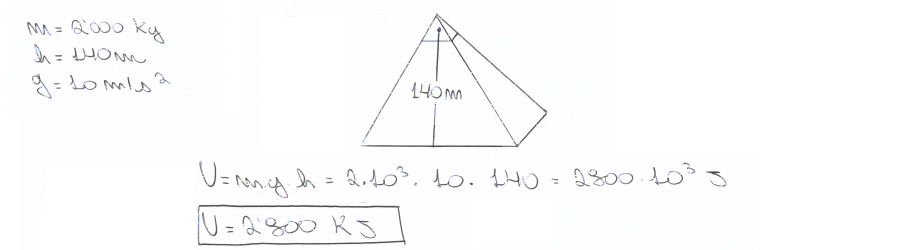 m = 2'000 Kg
h = 140m
g = 10 m/s²
140m
U = m.g.h = 2.10³. 10. 140 = 2800.10³ J
U = 2'800 KJ